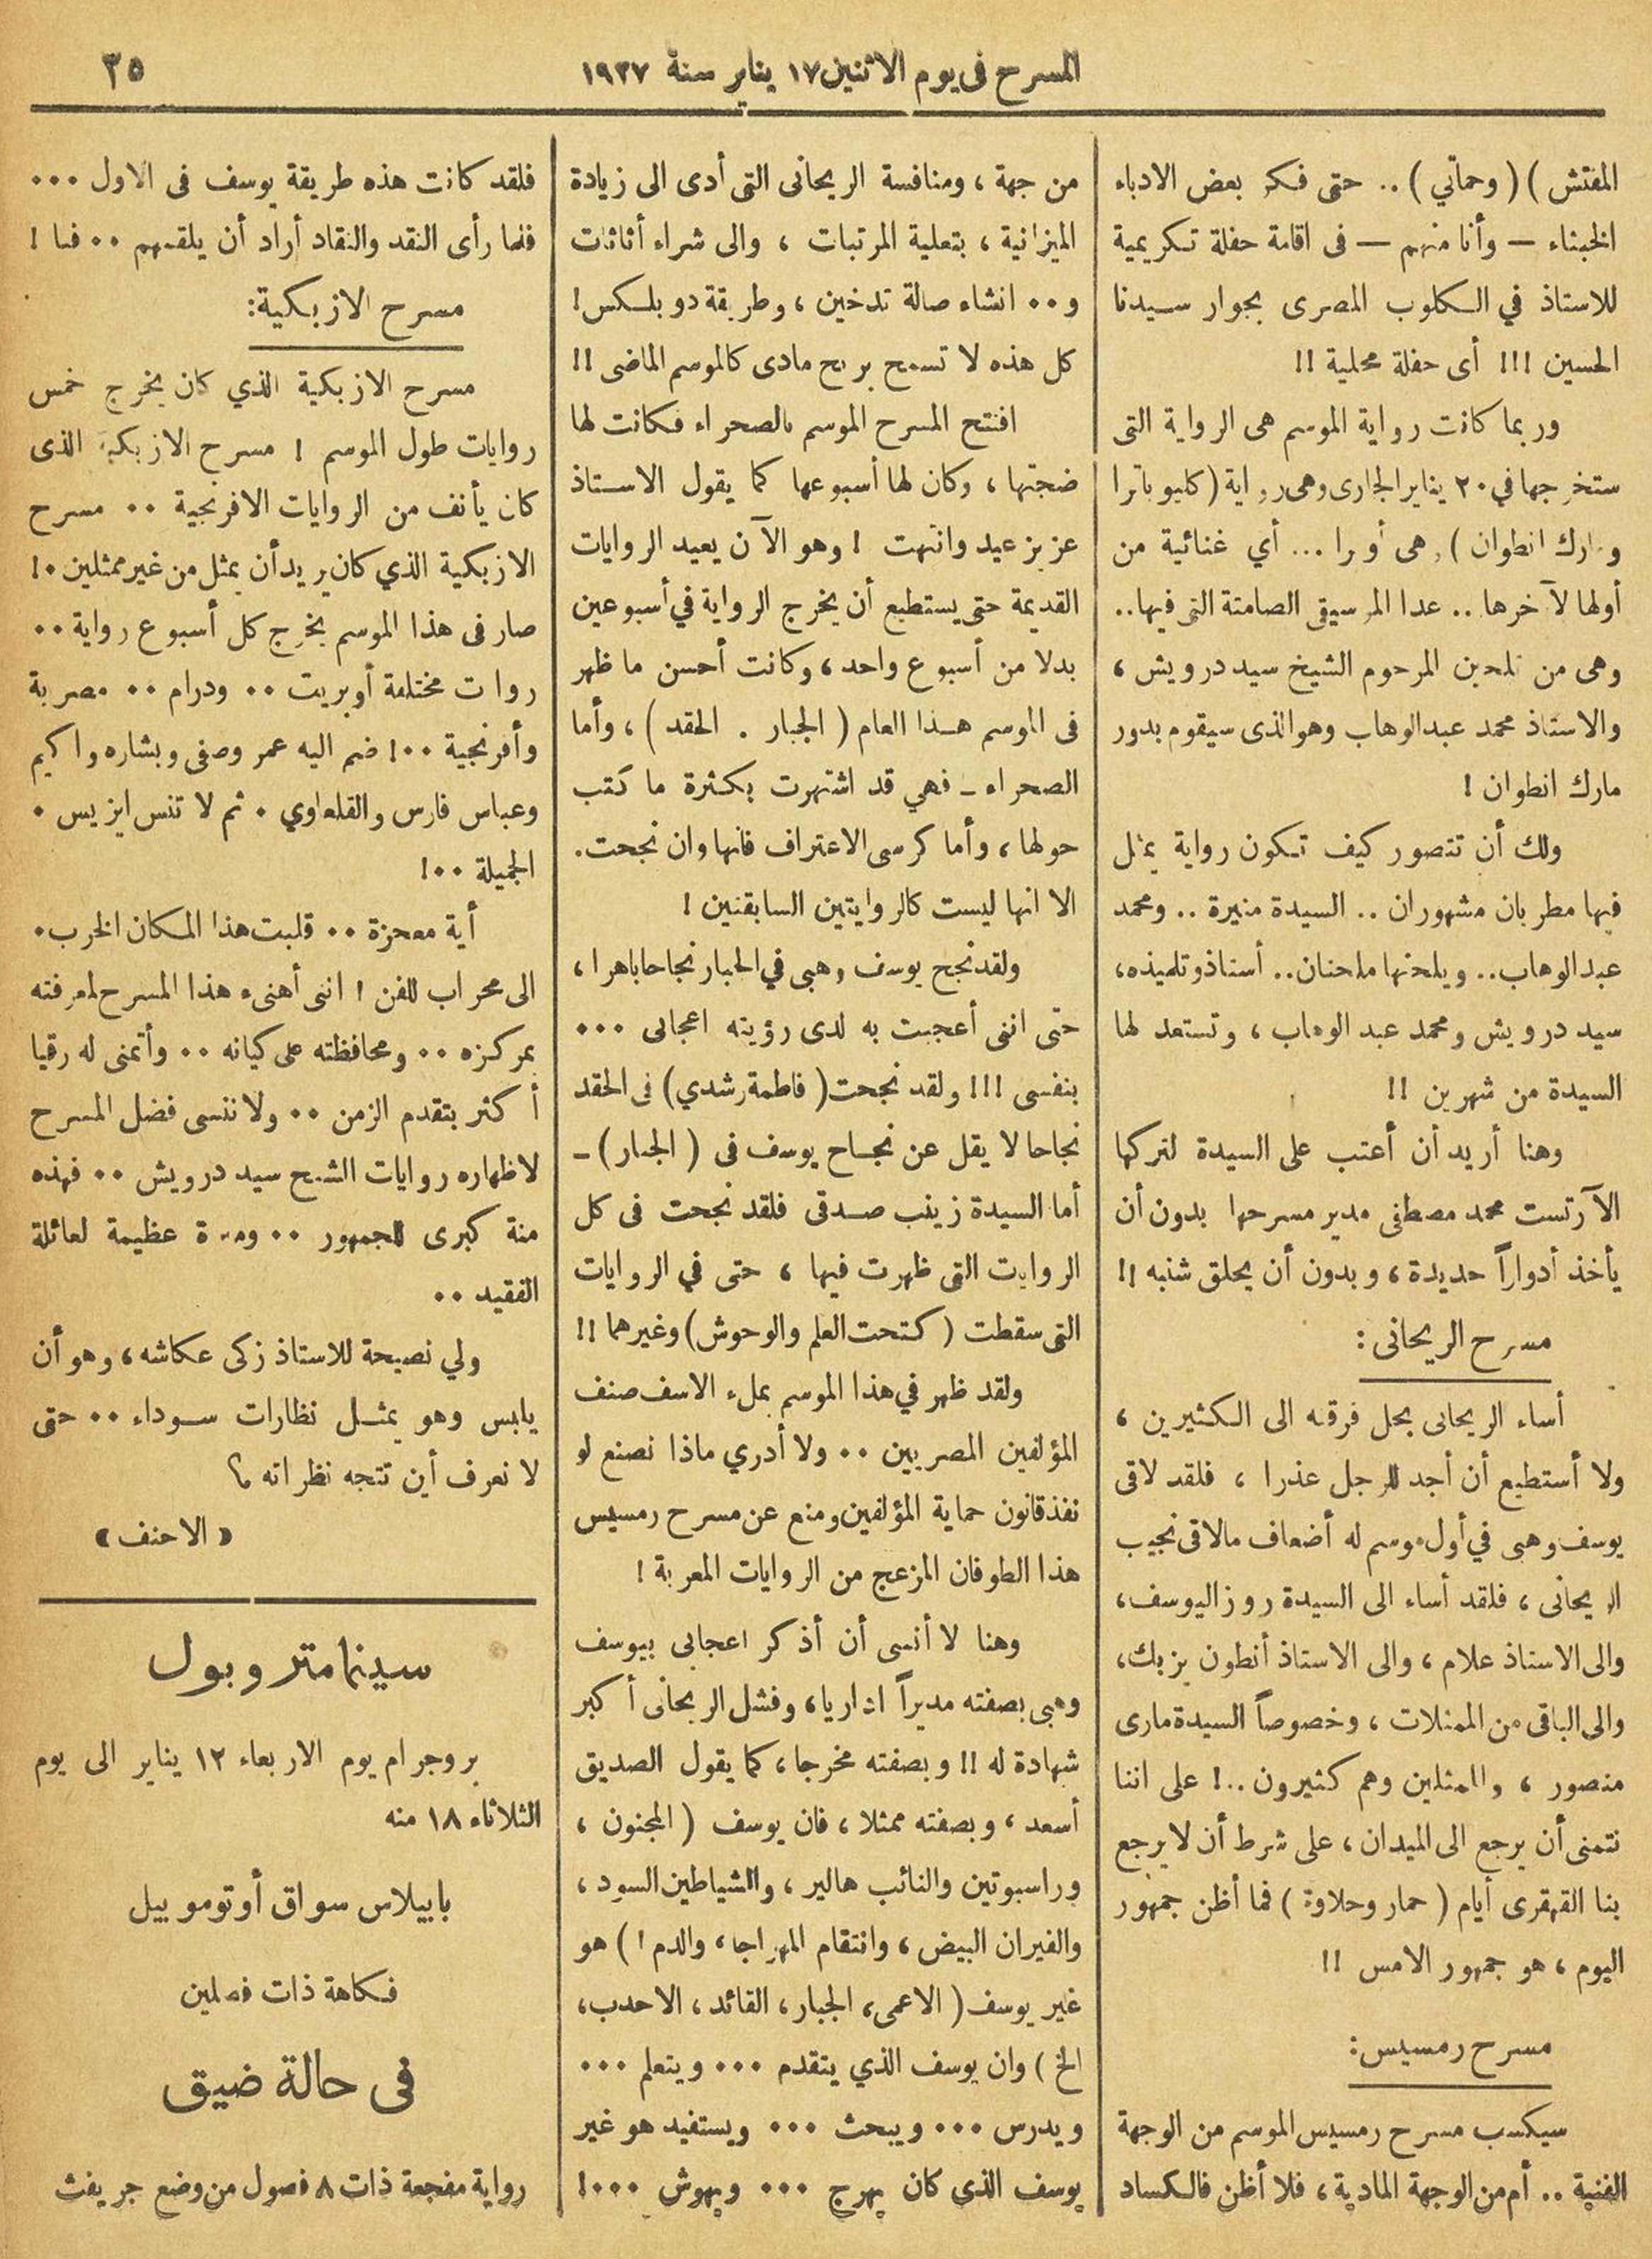 المسرح فى يوم الاثنين ١٧ يناير سنة ١٩٢٧
٣٥
المفتش) (وحماتي) .. حتى فكر بعض الادباء
الخبثاء — وأنا منهم — فى اقامة حفلة تكريمية
للاستاذ في الكلوب المصرى بجوار سيدنا
الحسين !!! أى حفلة محلية !!
وربما كانت رواية الموسم هى الرواية التى
ستخرجها في ٢٠ يناير الجارى وهى رواية (كليوباترا
ومارك انطوان) وهى أوبرا ... أي غنائية من
أولها لآخرها .. عدا الموسيقى الصامتة التى فيها..
وهى من تلحين المرحوم الشيخ سيد درويش ،
والاستاذ محمد عبدالوهاب وهو الذى سيقوم بدور
مارك انطوان !
ولك أن تتصور كيف تكون رواية يمثل
فيها مطربان مشهوران .. السيدة منيرة .. ومحمد
عبدالوهاب .. ويلحنها ملحنان .. أستاذ وتلميذه،
سيد درويش ومحمد عبد الوهاب ، وتستعد لها
السيدة من شهرين !!
وهنا أريد أن أعتب على السيدة لتركها
الآرتست محمد مصطفى مدير مسرحها بدون أن
يأخذ أدواراً جديدة ، وبدون أن يحلق شنبه !!
مسرح الريحانى :
أساء الريحانى بحل فرقته الى الكثيرين ،
ولا أستطيع أن أجد للرجل عذرا ، فلقد لاقى
يوسف وهبى في أول موسم له أضعاف مالاقى نجيب
الريحانى ، فلقد أساء الى السيدة روز اليوسف،
والى الاستاذ علام ، والى الاستاذ أنطون يزبك،
والى الباقى من الممثلات ، وخصوصاً السيدة مارى
منصور ، والممثلين وهم كثيرون ..! على اننا
نتمنى أن يرجع الى الميدان ، على شرط أن لا يرجع
بنا القهقرى أيام (حمار وحلاوة) فما أظن جمهور
اليوم ، هو جمهور الامس !!
مسرح رمسيس :
سيكسب مسرح رمسيس الموسم من الوجهة
الفنية .. أم من الوجهة المادية ، فلا أظن فالكساد
من جهة ، ومنافسة الريحانى التى أدى الى زيادة
الميزانية ، بتعلية المرتبات ، والى شراء أثاثات
و.. انشاء صالة تدخين ، وطريقة دوبلكس !
كل هذه لا تسمح بربح مادى كالموسم الماضى !!
افتتح المسرح الموسم بالصحراء فكانت لها
ضجتها ، وكان لها أسبوعها كما يقول الاستاذ
عزيز عيد وانتهت ! وهو الآن يعيد الروايات
القديمة حتى يستطيع أن يخرج الرواية في أسبوعين
بدلا من أسبوع واحد ، وكانت أحسن ما ظهر
فى الموسم هذا العام (الجبار . الحقد) ، وأما
الصحراء ـ فهي قد اشتهرت بكثرة ما كتب
حولها ، وأما كرسى الاعتراف فانها وان نجحت.
الا انها ليست كالروايتين السابقتين !
ولقد نجح يوسف وهبى في الجبار نجاحا باهرا ،
حتى اننى أعجبت به لدى رؤيته اعجابى ...
بنفسى !!! ولقد نجحت (فاطمة رشدي) فى الحقد
نجاحا لا يقل عن نجاح يوسف فى (الجبار) ـ
أما السيدة زينب صدقى فلقد نجحت فى كل
الروايات التى ظهرت فيها ، حتى في الروايات
التى سقطت (كتحت العلم والوحوش) وغيرهما !!
ولقد ظهر في هذا الموسم بملء الاسف صنف
المؤلفين المصريين .. ولا أدري ماذا نصنع لو
نفذ قانون حماية المؤلفين ومنع عن مسرح رمسيس
هذا الطوفان المزعج من الروايات المعربة !
وهنا لا أنسى أن أذكر اعجابى بيوسف
وهبى بصفته مديراً اداريا، وفشل الريحانى أكبر
شهادة له !! وبصفته مخرجا ، كما يقول الصديق
أسعد ، وبصفته ممثلا ، فان يوسف (المجنون ،
وراسبوتين والنائب هالير ، والشياطين السود ،
والفيران البيض ، وانتقام المهراجا ، والدم !) هو
غير يوسف (الاعمى، الجبار ، القائد ، الاحدب،
الخ) وان يوسف الذي يتقدم ... ويتعلم ...
ويدرس ... ويبحث ... ويستفيد هو غير
يوسف الذي كان يهرج ... ويهوش ...!
فلقد كانت هذه طريقة يوسف فى الاول ...
فلما رأى النقد والنقاد أراد أن يلقمهم .. فنا !
مسرح الازبكية :
مسرح الازبكية الذي كان يخرج خمس
روايات طول الموسم ! مسرح الازبكية الذى
كان يأنف من الروايات الافرنجية .. مسرح
الازبكية الذي كان يريد أن يمثل من غير ممثلين .!
صار فى هذا الموسم يخرج كل أسبوع رواية ..
روايات مختلفة أوبريت .. ودرام .. مصرية
وأفرنجية ..! ضم اليه عمر وصفى وبشاره واكيم
وعباس فارس والقلعاوي . ثم لا تنس ايزيس .
الجميلة ..!
أية معجزة .. قلبت هذا المكان الخرب .
الى محراب للفن ! اننى أهنىء هذا المسرح لمعرفته
بمركزه .. ومحافظته على كيانه .. وأتمنى له رقيا
أكثر بتقدم الزمن .. ولا ننسى فضل المسرح
لاظهاره روايات الشيخ سيد درويش .. فهذه
منة كبرى للجمهور .. ومنة عظيمة لعائلة
الفقيد ..
ولي نصيحة للاستاذ زكى عكاشه ، وهو أن
يلبس وهو يمثل نظارات سوداء .. حتى
لا نعرف أين تتجه نظراته ؟
« الاحنف »
سينما متروبول
بروجرام يوم الاربعاء ١٢ يناير الى يوم
الثلاثاء ١٨ منه
بابيلاس سواق أوتوموبيل
فكاهة ذات فصلين
فى حالة ضيق
رواية مفجعة ذات ٨ فصول من وضع جريفث